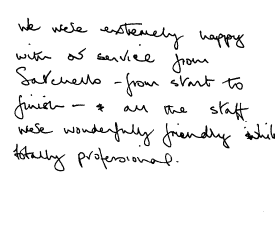 We were extremely happy
with service from
Satchells - from start to
finish - & all the staff
were wonderfully friendly while
totally professional.